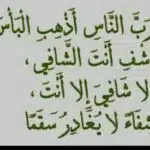 رَبَّ النَّاسِ أَذْهِبِ الْبَأْسَ
شْفِ أَنْتَ الشَّافِي،
لَا شَافِيَ إِلَّا أَنْتَ،
شِفَاءً لَا يُغَادِرُ سَقَمًا